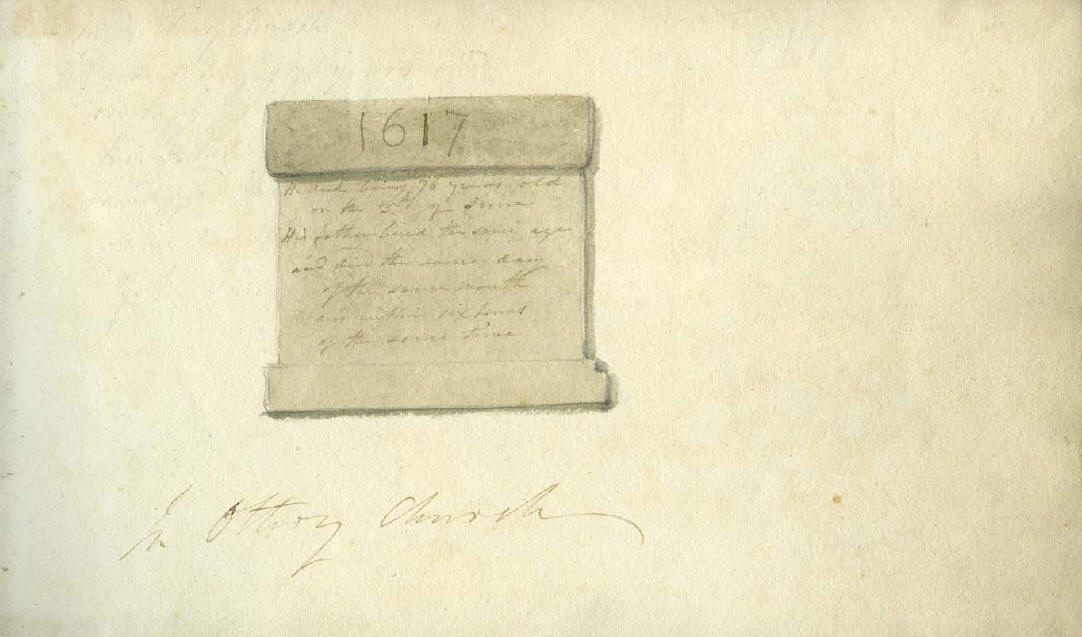 1617
He died being 78 years old
on the 5th of June
His father lived the same age
and died the same day
of the same month
and within six hours
of the same time
In Ottery Church